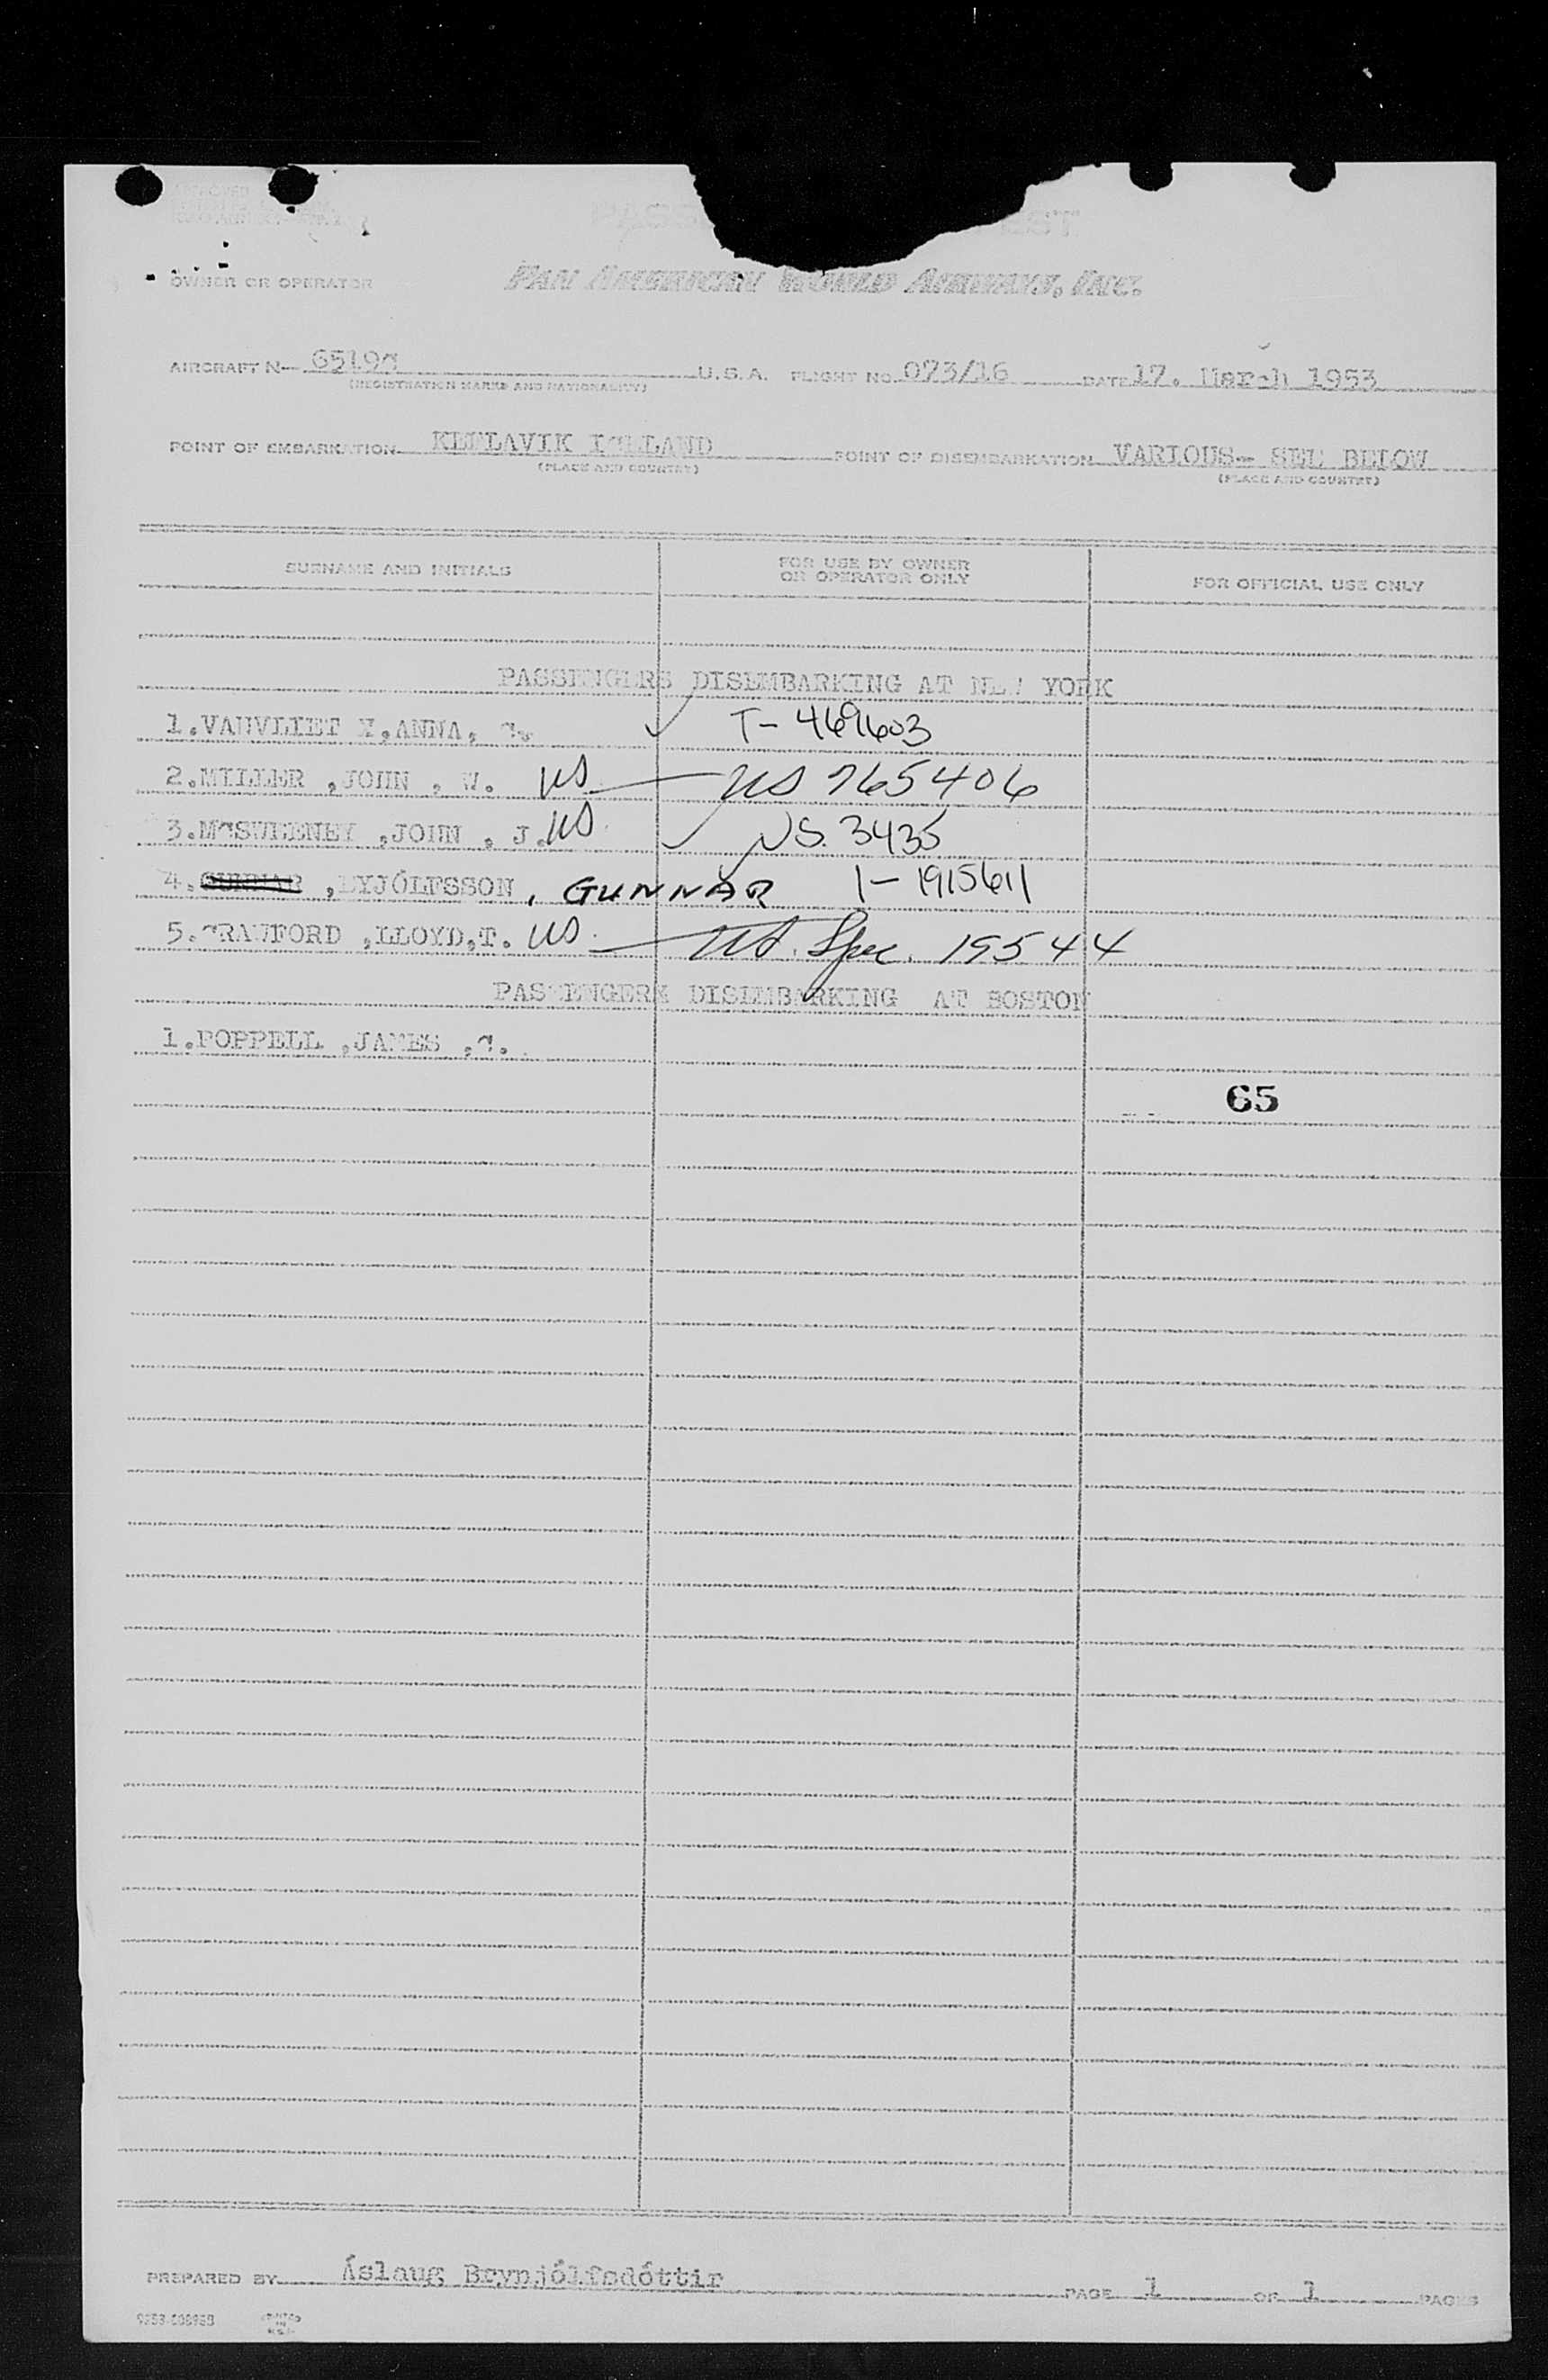 OWNER OR OPERATOR PAN AMERICAN WORLD AIRWAYS, INC.
AIRCRAFT N- 6519 U.S.A. FLIGHT NO. 073/16 DATE 17. March 1953
(REGISTRATION MARKS AND NATIONALITY)
POINT OF EMBARKATION KEFLAVIK ICELAND POINT OF DISEMBARKATION VARIOUS- SEE BELOW
(PLACE AND COUNTRY) (PLACE AND COUNTRY)
SURNAME AND INITIALS FOR USE BY OWNER OR OPERATOR ONLY FOR OFFICIAL USE ONLY
PASSENGERS DISEMBARKING AT NEW YORK
1.VANVLIET X,ANNA, T- 469603
2.MILLER ,JOHN , W. US US 765406
3.MCSWEENEY ,JOHN , J. US US. 3435
4.GUNNAR ,EYJÓLFSSON, GUNNAR I-1915611
5.CRAWFORD ,LLOYD,T. US. US. Spec. 19544
PASSENGERX DISEMBARKING AT BOSTON
1.POPPELL ,JAMES ,C.
65
PREPARED BY Áslaug Brynjólfsdóttir PAGE 1 OF 1 PAGES
PRINTED
IN
U.S.A.